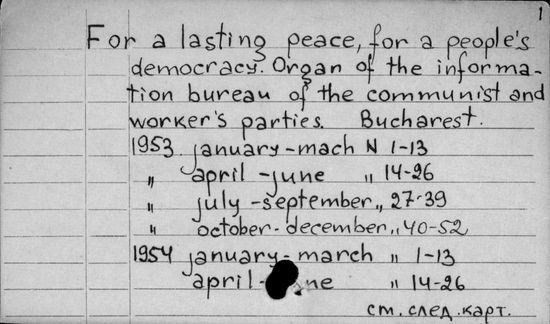 1
For a lasting peace, for a people's
democracy. Organ of the informa-
tion bureau of the communist and
worker's parties. Bucharest.
1953 january-mach N 1-13
" april-june " 14-26
" july-september " 27-39
" october-december " 40-52
1954 january-march " 1-13
april- ne " 14-26
см. след. карт.